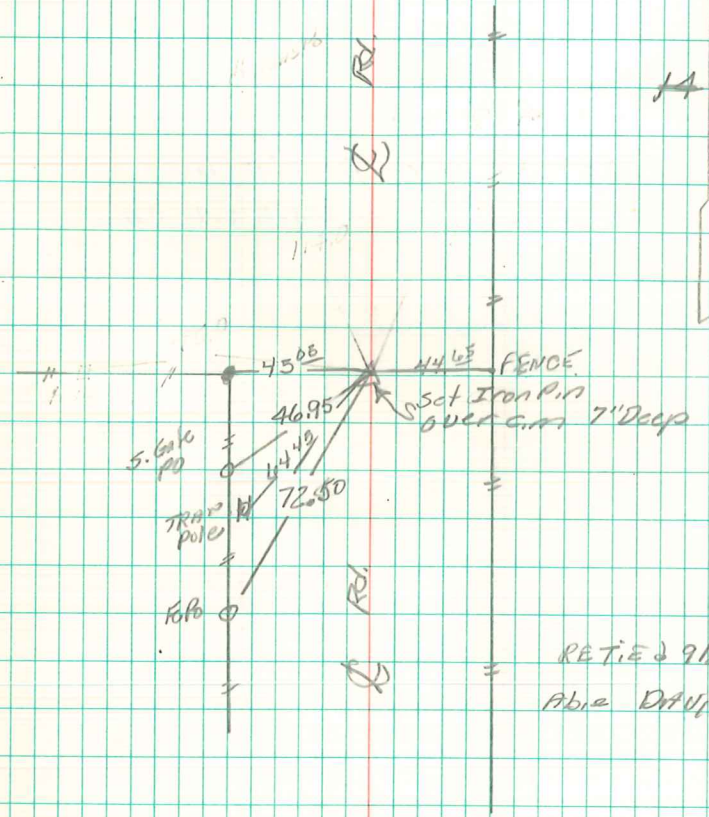 Rd.
℄
14
45 05 44 65 FENCE
Set Iron Pin
over c.m 7" Deep
46.95
S. Gate
po
64 49
72.50
TRAN
pole
FePo
Rd.
℄
RETIED 91
Abie DAVI